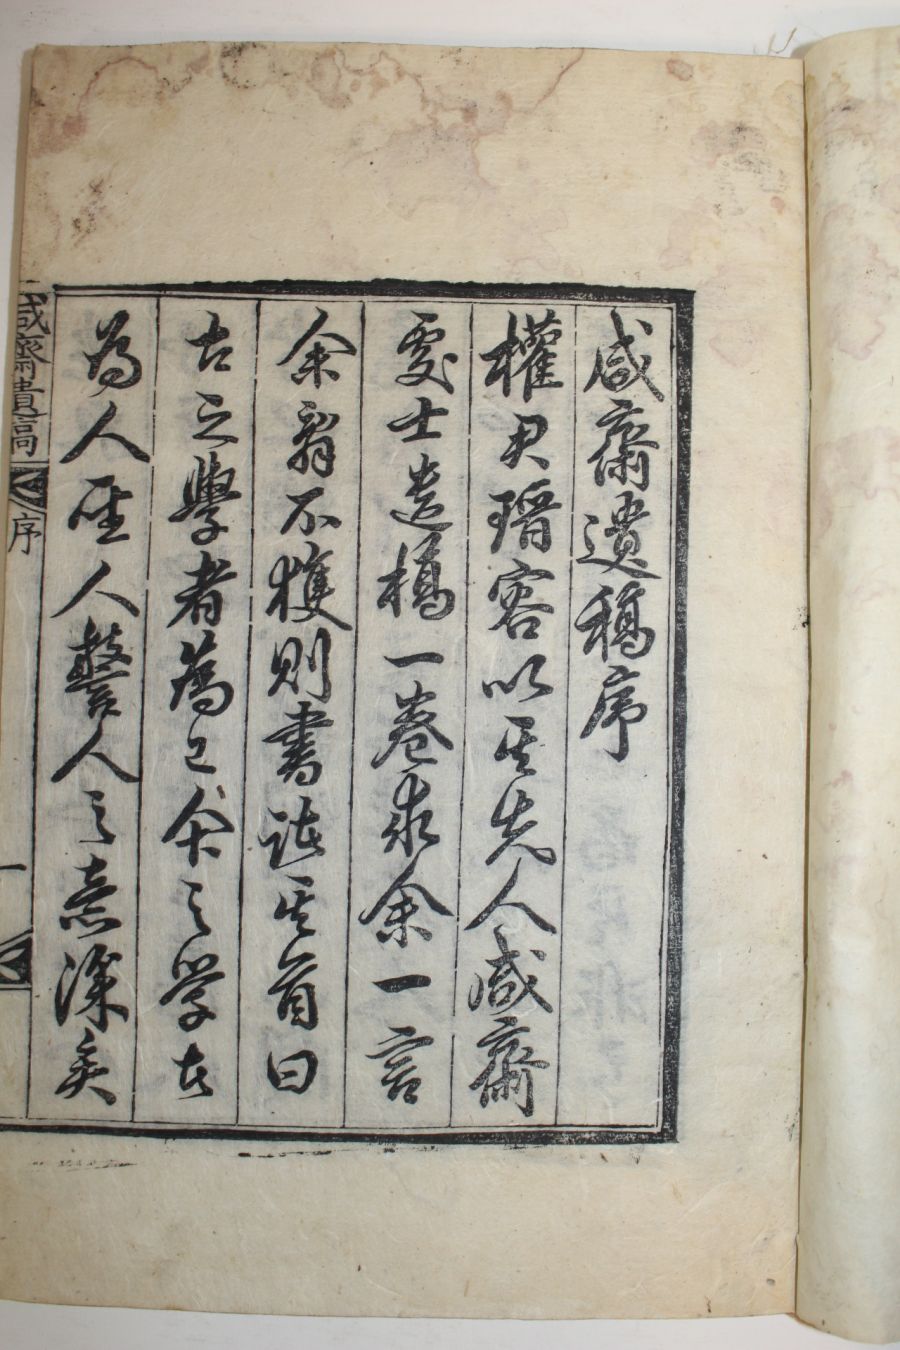 咸齋遺稿序
權君瑨容以其先人咸齋
處士遺稿一卷求余一言
余辭不獲則書諸其首曰
古之學者爲己今之學者
爲人聖人警人之意深矣
咸齋遺稿
序
一